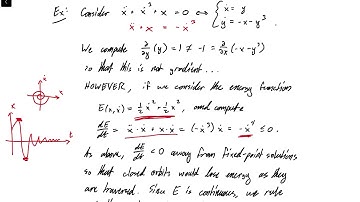 Ex: Consider ẍ + ẋ³ + x = 0 ⇔ { ẋ = y
ẍ + x = -ẋ³ { ẏ = -x - y³.
We compute ∂/∂y (y) = 1 ≠ -1 = ∂/∂x (-x-y³)
so that this is not gradient...
HOWEVER, if we consider the energy function
E(x,ẋ) = ½x² + ½ẋ², and compute
dE/dt = ẋ·ẍ + x·ẋ = (-ẋ³)ẋ = -ẋ⁴ ≤ 0.
As above, dE/dt < 0 away from fixed-point solutions
so that closed orbits would lose energy as they
are traversed. Since E is continuous, we rule
ẋ
x
x
t